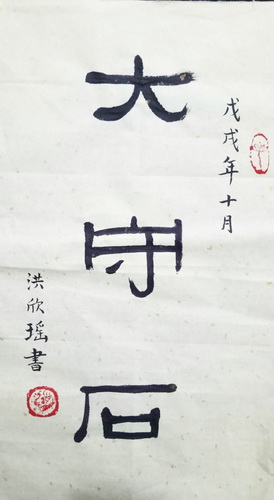 戊戌年十月
大守石
洪欣瑶書